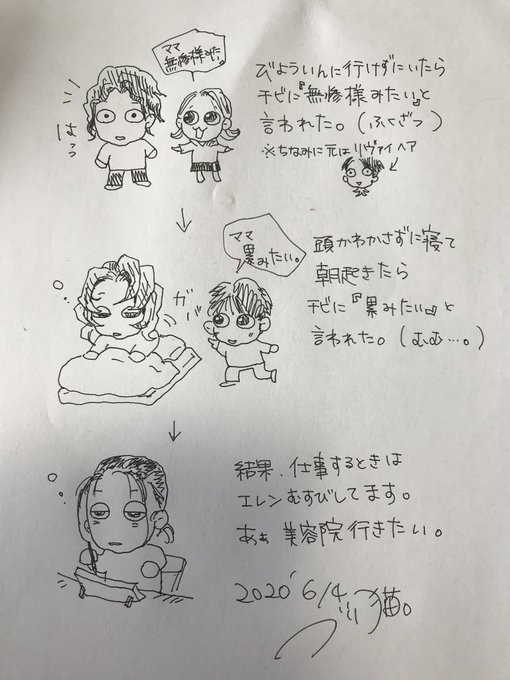 ママ
無惨様みたい。
はっっ
びよういんに行けずにいたら
チビに『無惨様みたい』と
言われた。(ふくざつ)
※ちなみに元はリヴァイヘア
↓
ママ
累みたい。
ガバ
頭かわかさずに寝て
朝起きたら
チビに『累みたい』と
言われた。(むむ…。)
↓
結果、仕事するときは
エレンむすびしてます。
あぁ 美容院行きたい。
2020' 6/4
猫。